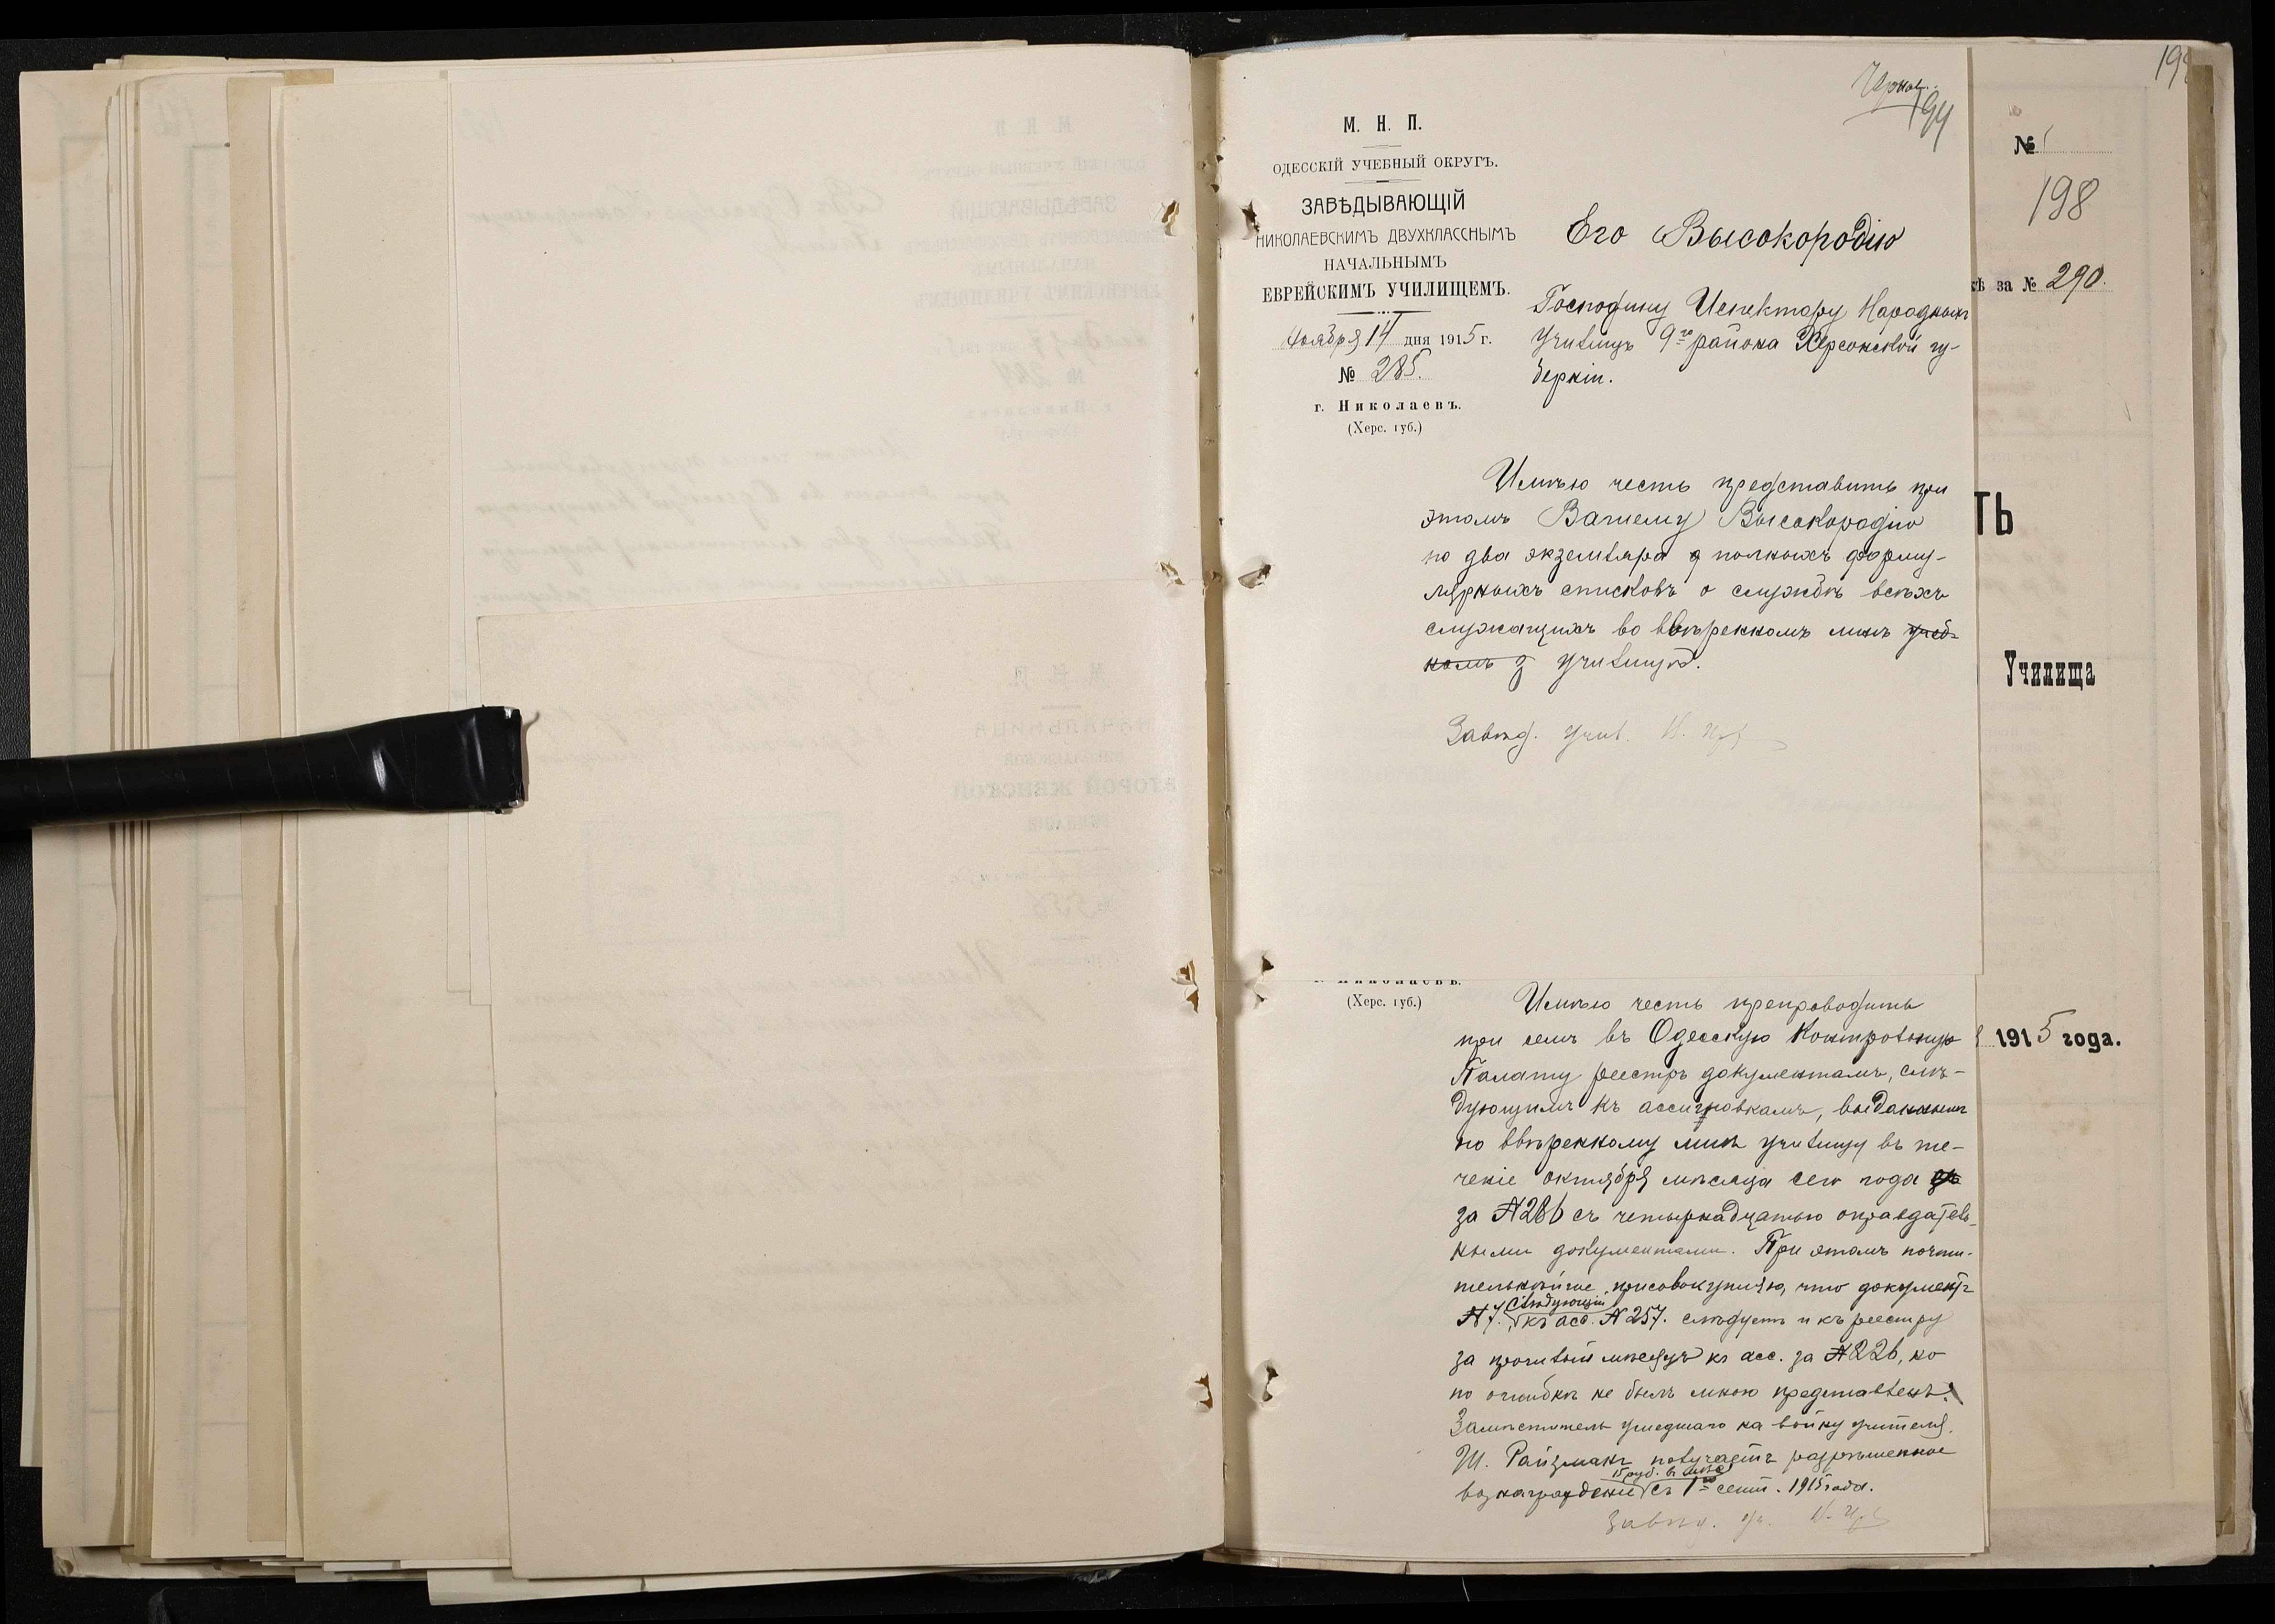 Чернов.
194
М. Н. П.
ОДЕССКІЙ УЧЕБНЫЙ ОКРУГЪ.
ЗАВѢДЫВАЮЩІЙ
НИКОЛАЕВСКИМЪ ДВУХКЛАССНЫМЪ
НАЧАЛЬНЫМЪ
ЕВРЕЙСКИМЪ УЧИЛИЩЕМЪ.
Ноября 14 дня 1915 г.
№ 285.
г. Николаевъ.
(Херс. губ.)
Его Высокородію
Господину Испектору Народныхъ
Училищъ 9го района Херсонской гу-
берніи.
Имѣю честь представить при
этомъ Вашему Высокородію
по два экземпляра полныхъ форму-
лярныхъ списковъ о службѣ всѣхъ
служащихъ во ввѣренномъ мнѣ учеб-
номъ училищѣ.
Завѣд. учил.
(Херс. губ.)
Имѣю честь препроводить
при семъ въ Одесскую Контрольную
Палату реестръ документамъ, слѣ-
дующимъ къ ассигновкамъ, выданнымъ
по ввѣренному мнѣ училищу въ те-
ченіе октября мѣсяца сего года
за №286 съ четырнадцатью оправдатель-
ными документами. При этомъ почти-
тельнѣйше присовокупляю, что документъ
слѣдующій
№7. къ асс. №257. слѣдуетъ и къ реестру
за прошлый мѣсяцъ къ асс. за №226, но
по ошибкѣ не былъ мною представленъ.
Замѣститель ушедшаго на войну учителя
Ш. Райзманъ получаетъ разрѣшенное
15 руб. въ мѣс.
вознагражденіе съ 1го сент. 1915 года.
Завѣд. уч.
№
198
за № 290.
ТЬ
Училища
1915 года.